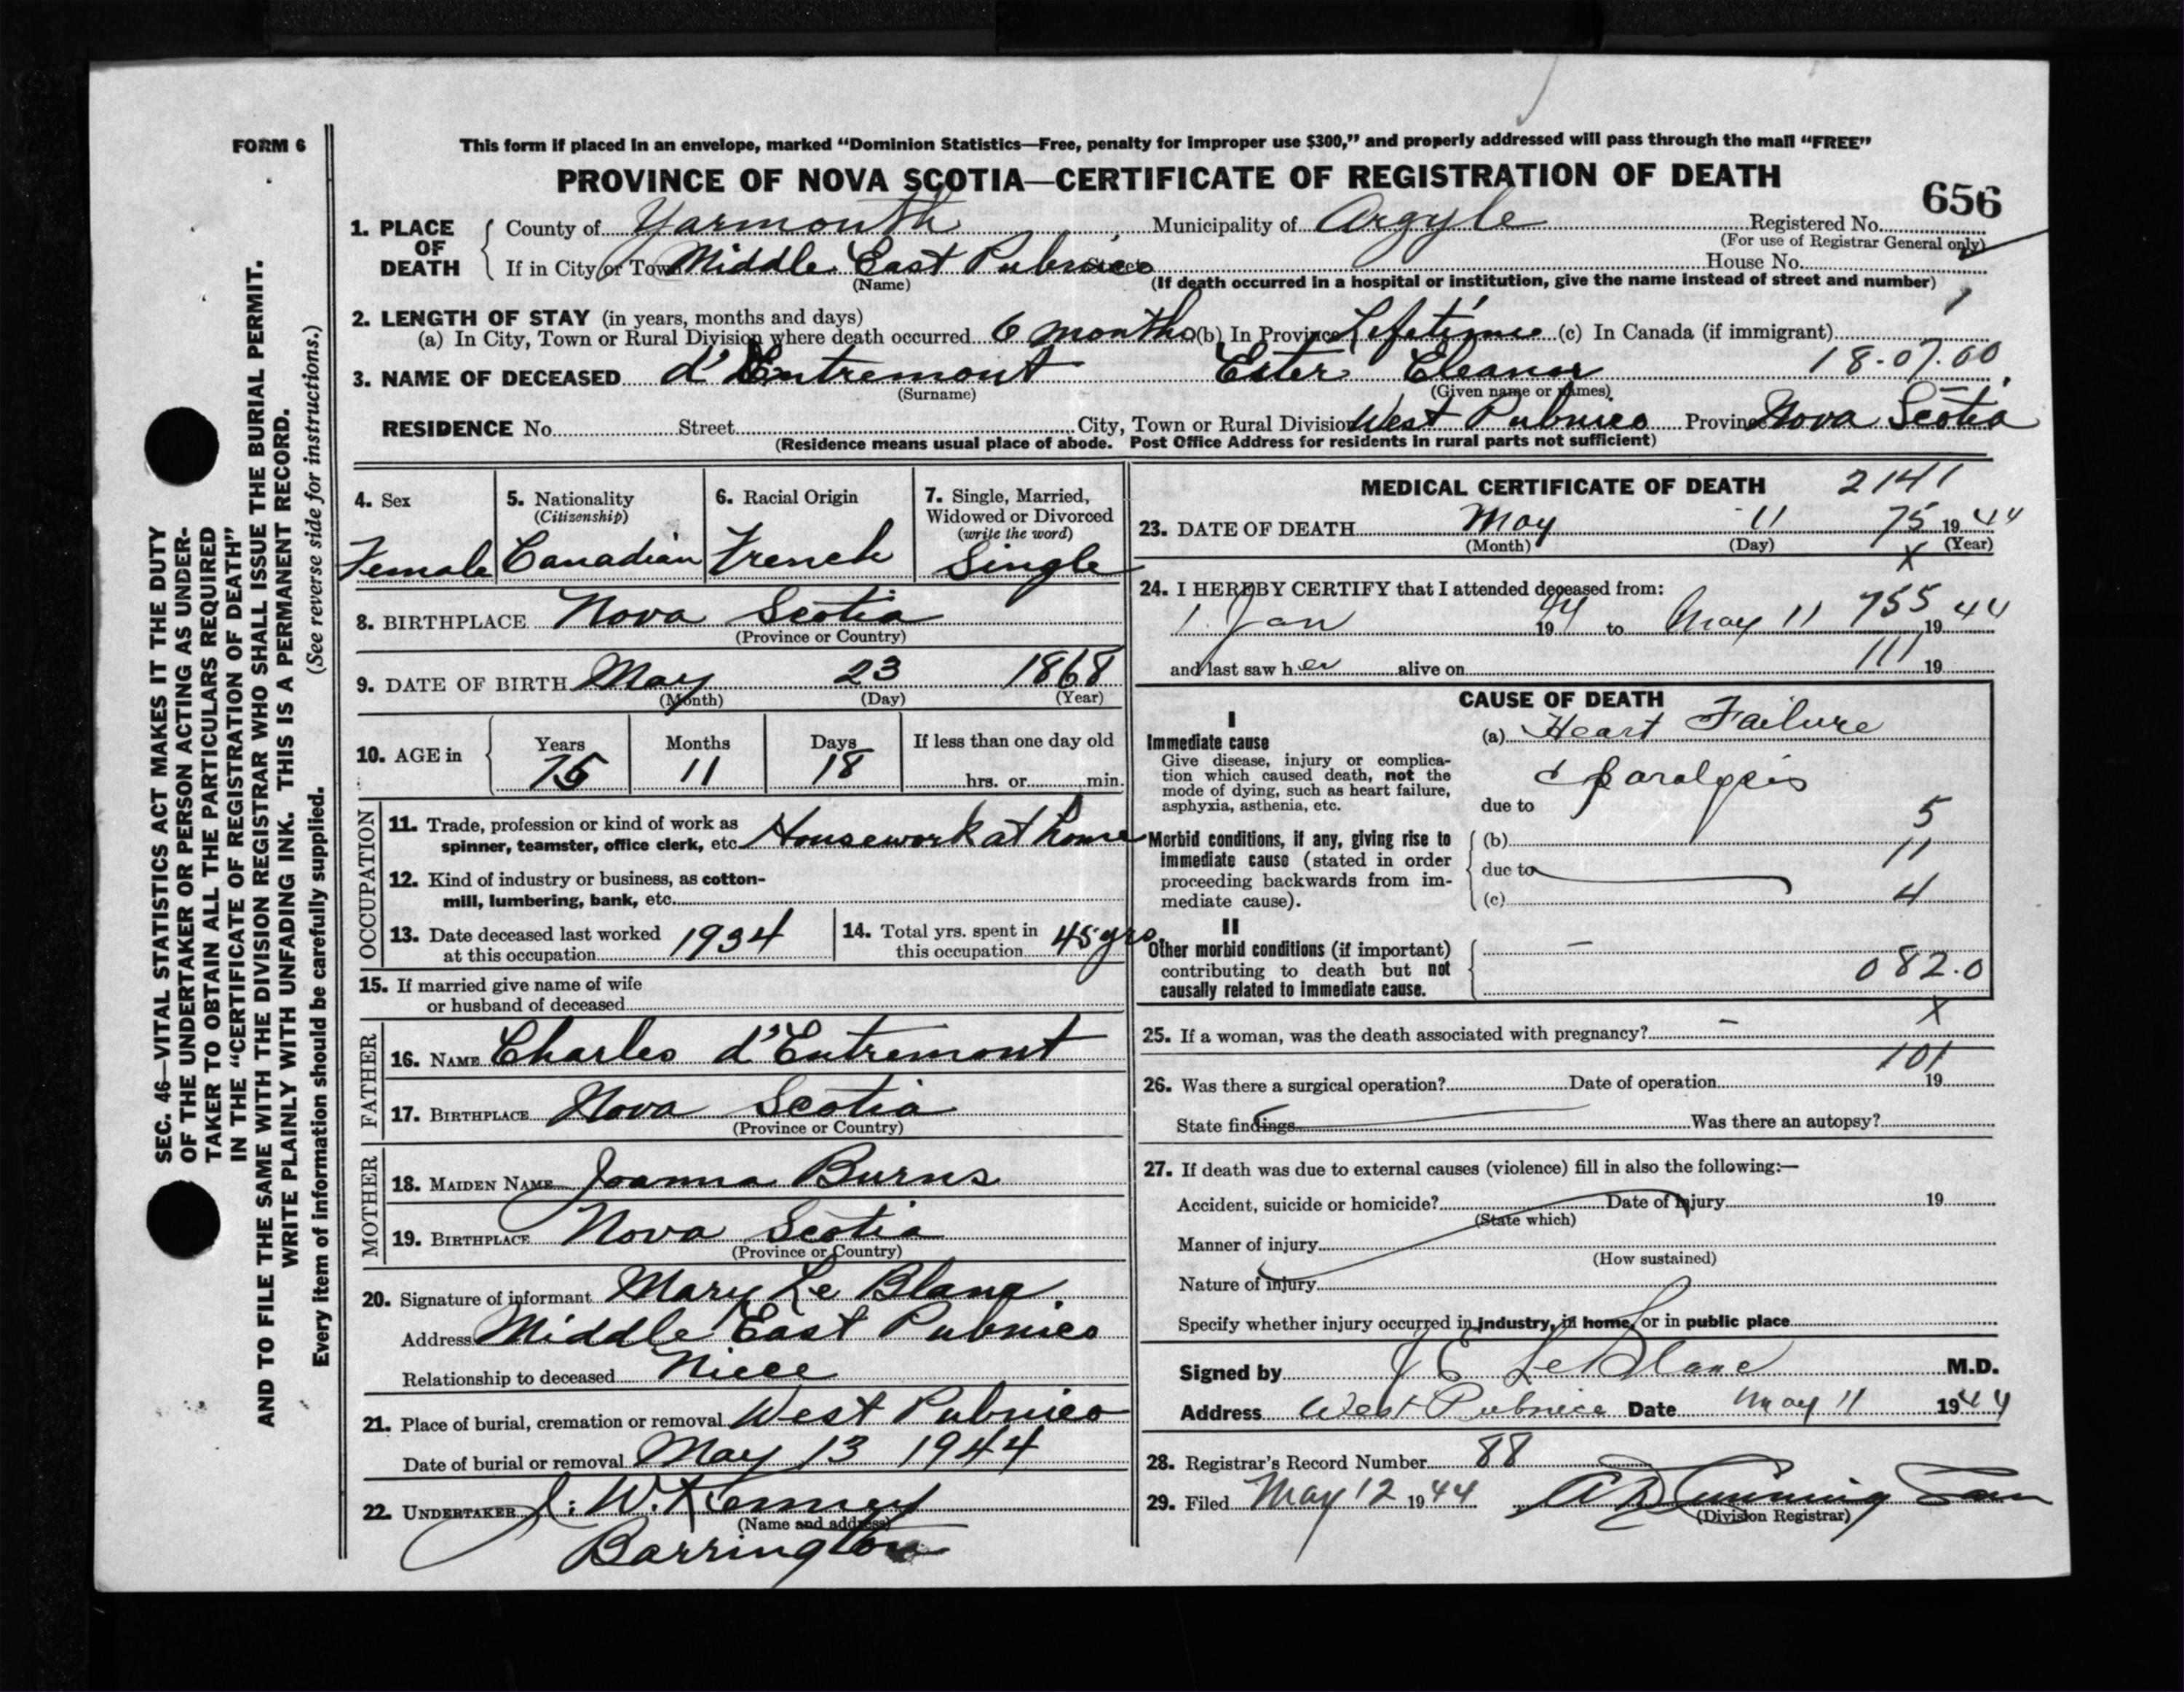 FORM 6
This form if placed in an envelope, marked "Dominion Statistics—Free, penalty for improper use $300," and properly addressed will pass through the mail "FREE"
PROVINCE OF NOVA SCOTIA—CERTIFICATE OF REGISTRATION OF DEATH
656
1. PLACE OF DEATH County of Yarmouth, Municipality of Argyle Registered No.
(For use of Registrar General only)
If in City or Town Middle East Pubnico Street House No.
(Name) (If death occurred in a hospital or institution, give the name instead of street and number)
2. LENGTH OF STAY (in years, months and days)
(a) In City, Town or Rural Division where death occurred 6 months (b) In Province Lifetime (c) In Canada (if immigrant)
3. NAME OF DECEASED d'Entremont Ester Eleanor 18-07.00
(Surname) (Given name or names)
RESIDENCE No. Street City, Town or Rural Division West Pubnico Province Nova Scotia
(Residence means usual place of abode. Post Office Address for residents in rural parts not sufficient)
4. Sex Female
5. Nationality (Citizenship) Canadian
6. Racial Origin French
7. Single, Married, Widowed or Divorced (write the word) Single
8. BIRTHPLACE Nova Scotia
(Province or Country)
9. DATE OF BIRTH May 23 1868
(Month) (Day) (Year)
10. AGE in Years 75 Months 11 Days 18 If less than one day old hrs. or min.
OCCUPATION
11. Trade, profession or kind of work as
spinner, teamster, office clerk, etc. Housework at home
12. Kind of industry or business, as cotton-
mill, lumbering, bank, etc.
13. Date deceased last worked
at this occupation 1934
14. Total yrs. spent in
this occupation 45 yrs.
15. If married give name of wife
or husband of deceased
FATHER
16. NAME Charles d'Entremont
17. BIRTHPLACE Nova Scotia
(Province or Country)
MOTHER
18. MAIDEN NAME Joanna Burns
19. BIRTHPLACE Nova Scotia
(Province or Country)
20. Signature of informant Mary Le Blanc.
Address Middle East Pubnico
Relationship to deceased Niece
21. Place of burial, cremation or removal West Pubnico
Date of burial or removal May 13 1944
22. UNDERTAKER J. W. Kenney
(Name and address)
Barrington
MEDICAL CERTIFICATE OF DEATH 2141
23. DATE OF DEATH May 11 75 1944
(Month) (Day) (Year)
X
24. I HEREBY CERTIFY that I attended deceased from:
1 Jan 1944 to May 11 755 1944
and last saw her alive on 111 19
CAUSE OF DEATH
I
Immediate cause
Give disease, injury or complica-
tion which caused death, not the
mode of dying, such as heart failure,
asphyxia, asthenia, etc.
(a) Heart Failure
paralysis
due to
5
Morbid conditions, if any, giving rise to
immediate cause (stated in order
proceeding backwards from im-
mediate cause).
(b)
11
due to
(c) 4
II
Other morbid conditions (if important)
contributing to death but not
causally related to immediate cause.
—
082.0
X
25. If a woman, was the death associated with pregnancy? —
101
26. Was there a surgical operation? Date of operation 19
State findings Was there an autopsy?
27. If death was due to external causes (violence) fill in also the following:—
Accident, suicide or homicide? Date of injury 19
(State which)
Manner of injury
(How sustained)
Nature of injury
Specify whether injury occurred in industry, in home, or in public place
Signed by J E LeBlanc M.D.
Address West Pubnico Date May 11 1944
28. Registrar's Record Number 88
29. Filed May 12 1944
(Division Registrar)
SEC. 46—VITAL STATISTICS ACT MAKES IT THE DUTY
OF THE UNDERTAKER OR PERSON ACTING AS UNDER-
TAKER TO OBTAIN ALL THE PARTICULARS REQUIRED
IN THE "CERTIFICATE OF REGISTRATION OF DEATH"
AND TO FILE THE SAME WITH THE DIVISION REGISTRAR WHO SHALL ISSUE THE BURIAL PERMIT.
WRITE PLAINLY WITH UNFADING INK. THIS IS A PERMANENT RECORD.
Every item of information should be carefully supplied. (See reverse side for instructions.)